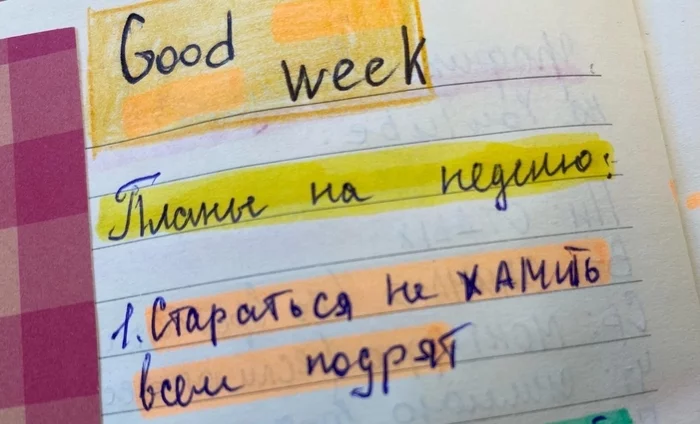 Good
week
Планы на неделю:
1. Стараться не хамить
всем подрят